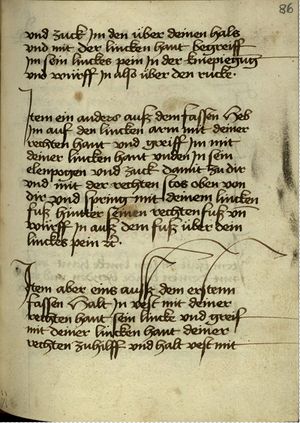 86
vnd zuck Im den über deinen hals
vnd mit der lincken hant begreiff
Im sein linckes pein In der kniepiegug
vnd würff In also über den rucke ·
Item ein anders ausz dem fassen Heb
im auf den lincken arm mit deiner
rechten hant vnd greiff im mit
deiner lincken hant vnden In sein
elenpogen vnd zuck damit zu dir
vnd mit der rechten stos oben von
dir vnd spring mit deinem lincken
fusz hinter seinen rechten fusz vn
würff In ausz dem fusz über dein
linckes pein
Item aber eins ausz dem erstenn
fassen Halt In vest mit deiner
rechten hant sein lincke vnd greif
mit deiner lincken hant deiner
rechten zuhilff vnd halt vest mit